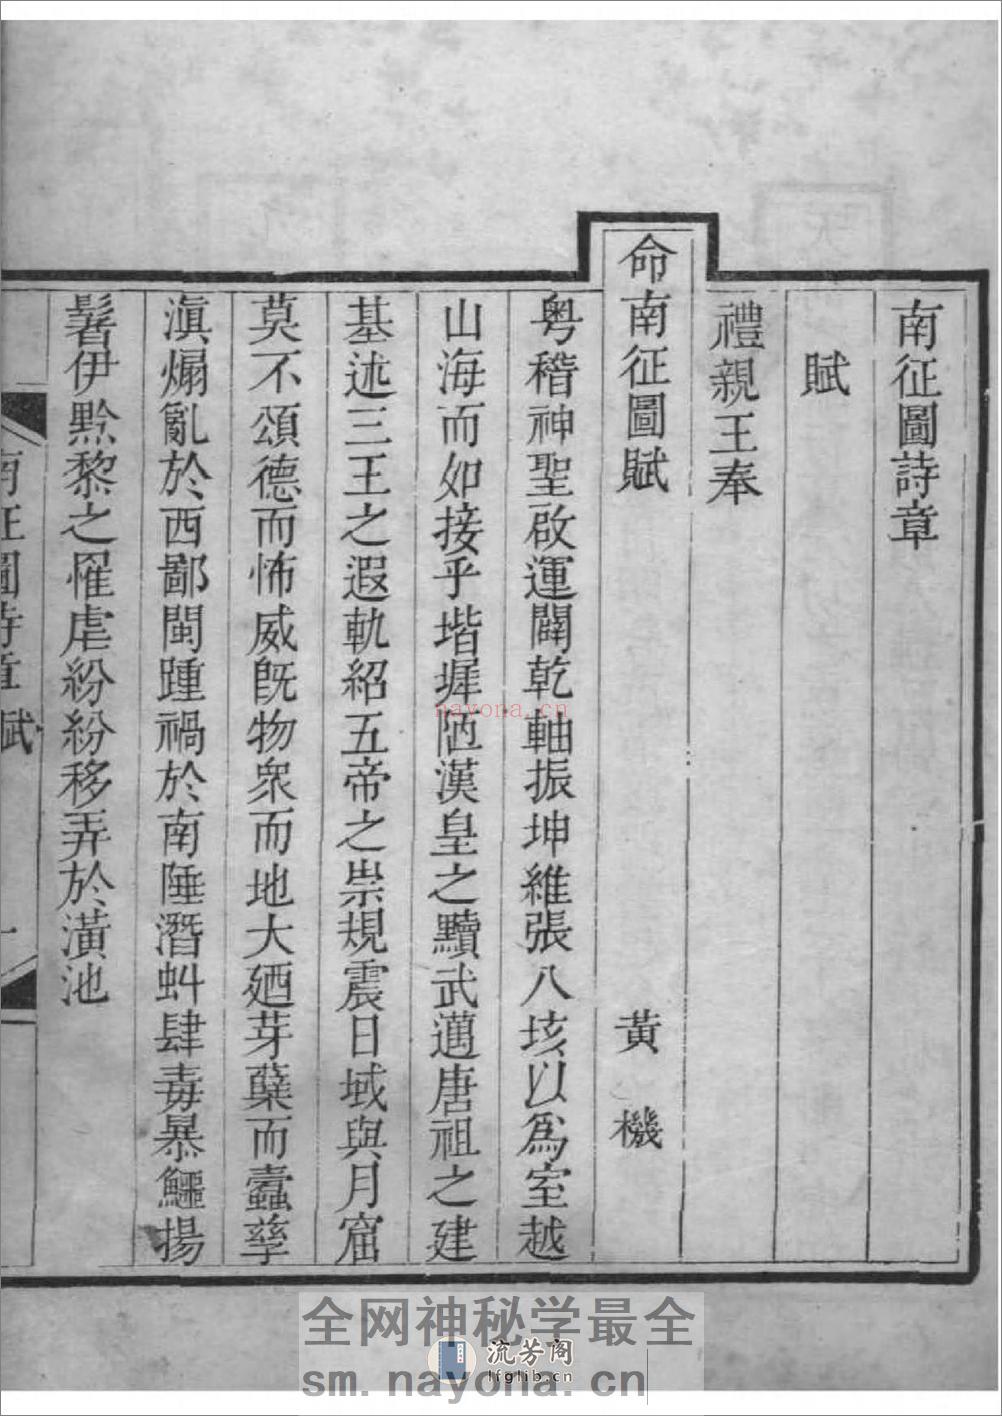 南征圖詩章
賦
禮親王奉
命南征圖賦 黃機
粤稽神聖啟運闢乾軸振坤維張八垓以為室越
山海而如接乎堦墀陋漢皇之黷武邁唐祖之建
基述三王之遐軌紹五帝之崇規震日域與月窟
莫不頌德而怖威旣物衆而地大廼芽蘖而蠹孳
滇煽亂於西鄙閩踵禍於南陲潛虯肆毒暴鱷揚
鬐伊黔黎之罹虐紛紛移弄於潢池
南征圖詩章 賦 一
nayona.cn
全网神秘学最全
流芳阁
lfglib.cn
sm.nayona.cn